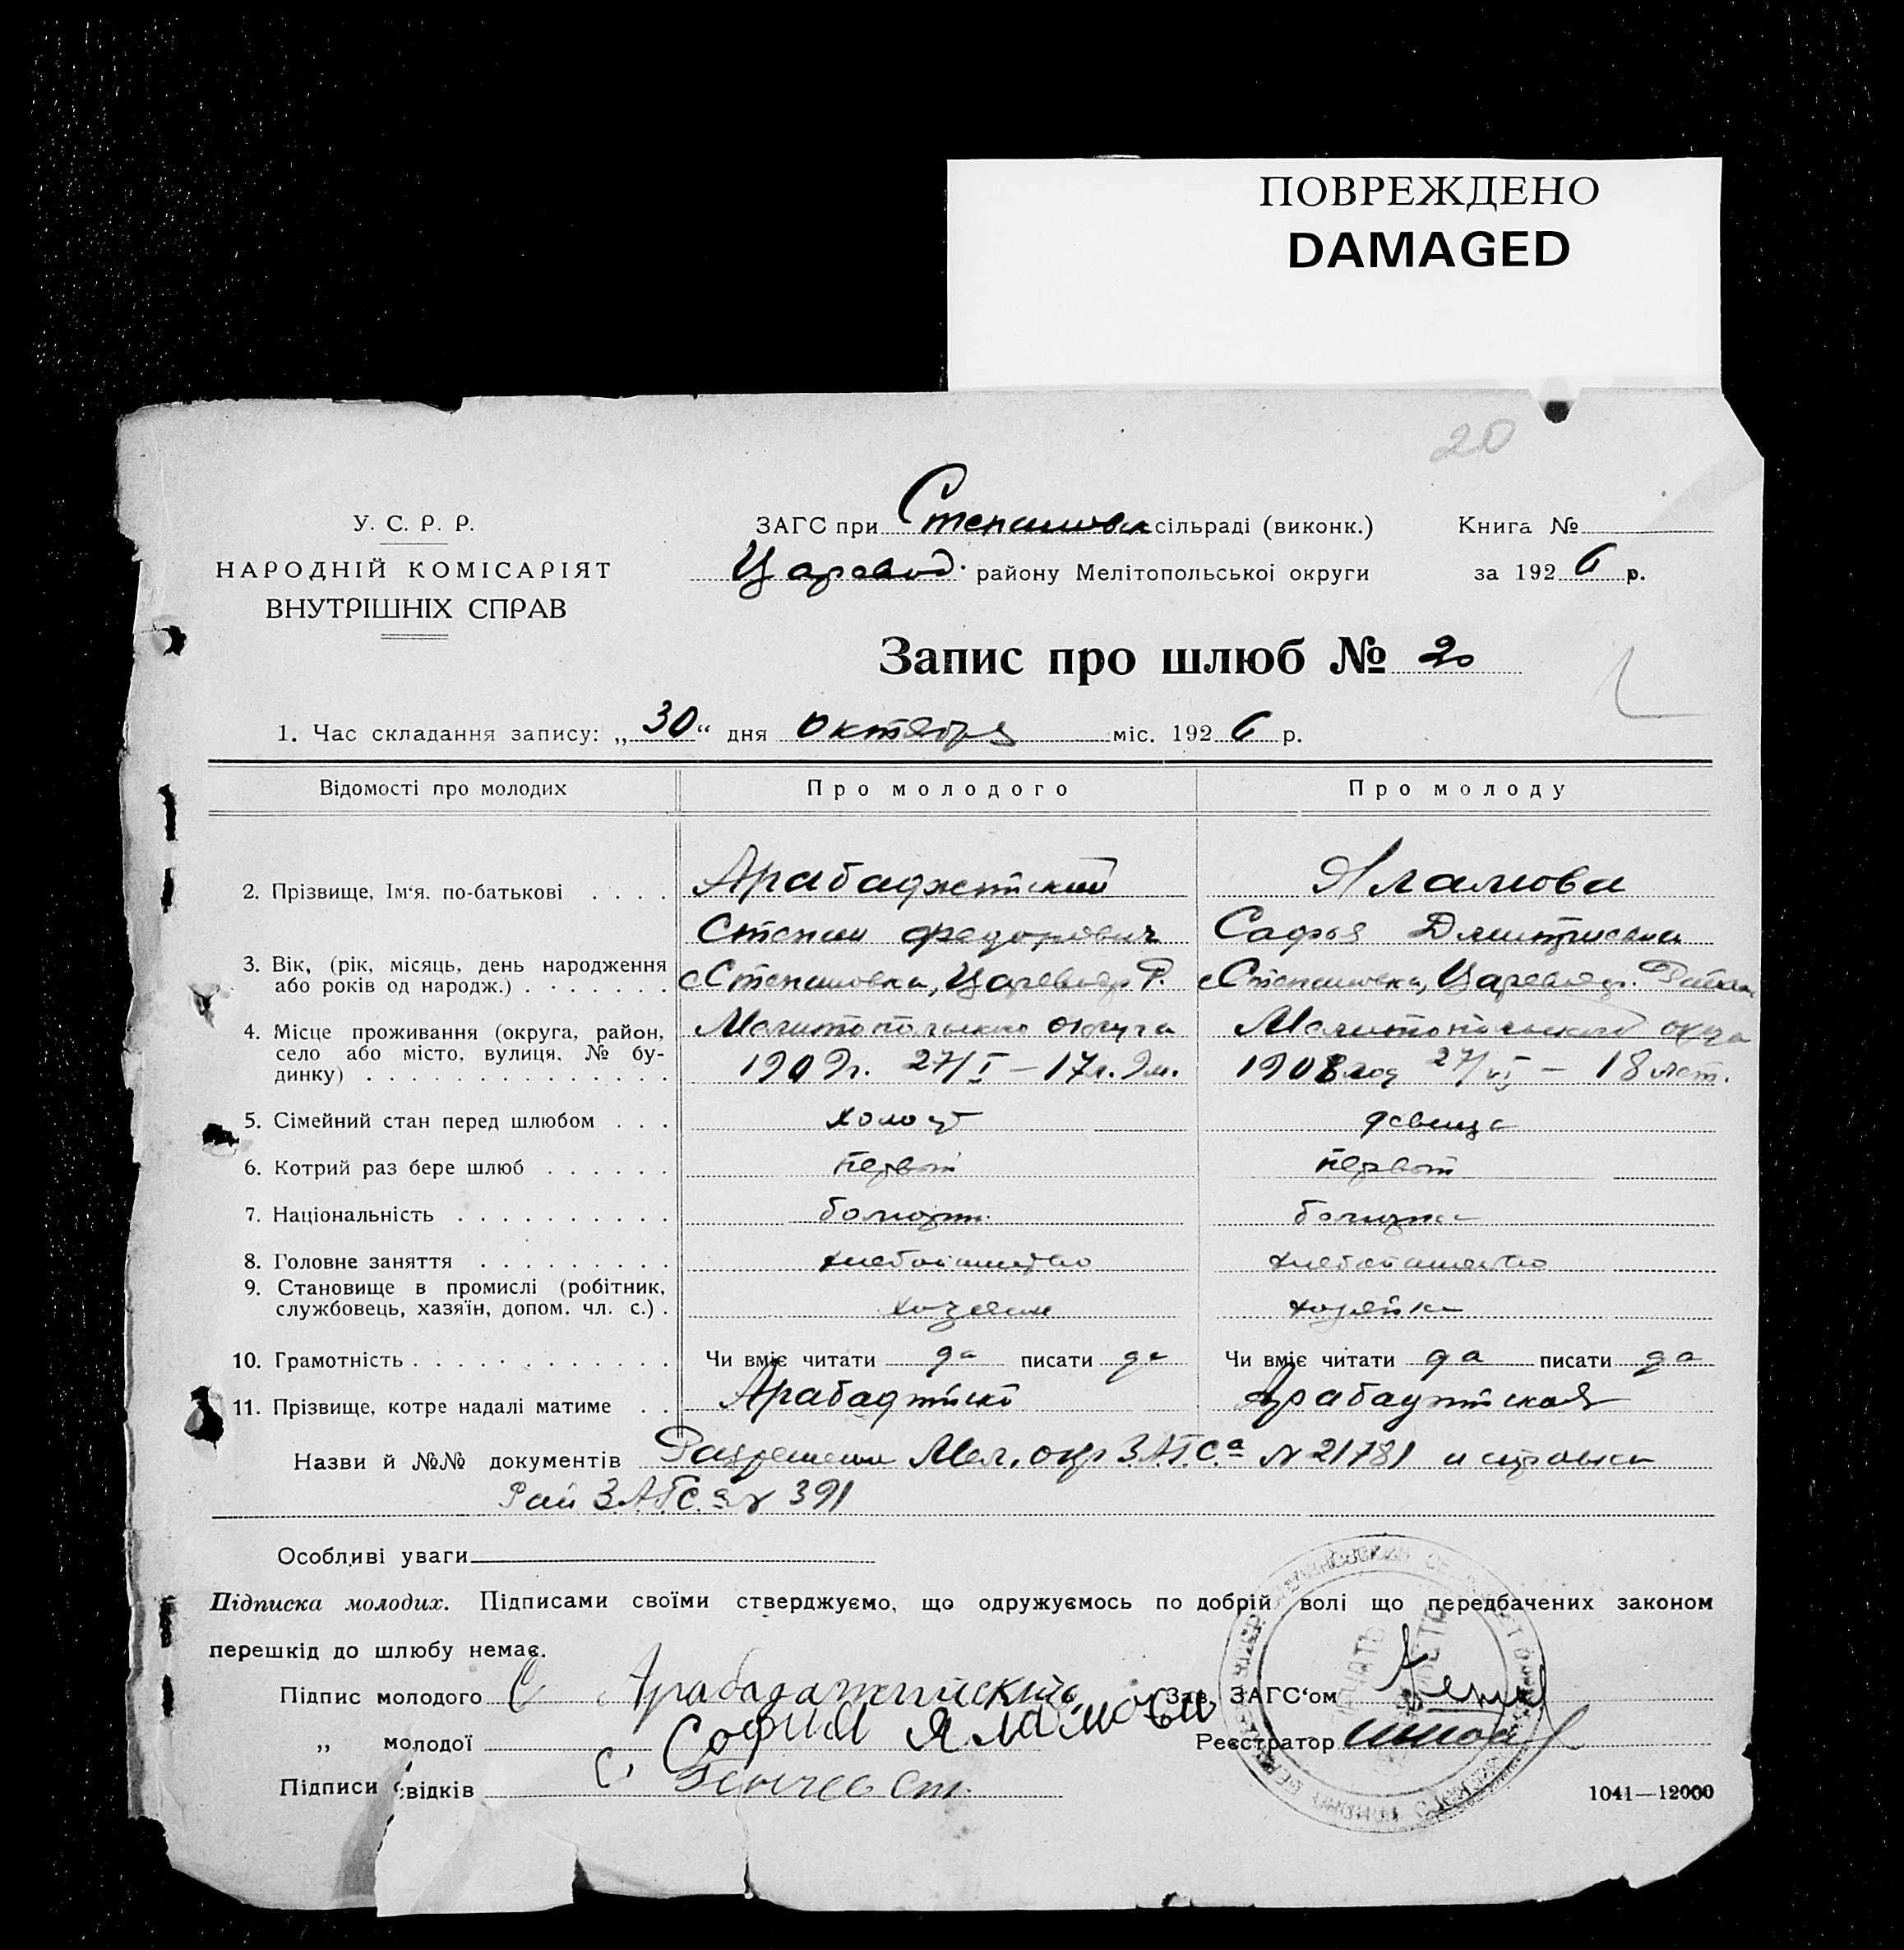 ПОВРЕЖДЕНО
DAMAGED
20
У. С. Р. Р.
НАРОДНІЙ КОМІСАРІЯТ
ВНУТРІШНІХ СПРАВ
ЗАГС при Степановк сільраді (виконк.)
Царевод. району Мелітопольської округи
Книга №
за 1926 р.
Запис про шлюб № 20
1. Час складання запису: „30“ дня Октября міс. 1926 р.
Відомості про молодих Про молодого Про молоду
2. Прізвище, Ім‘я. по-батькові . . . . Арабаджийский Яламова
Степан Федорович Софья Дмитриевна
3. Вік, (рік, місяць, день народження с Степановка, Царевод. Р. с Степановка, Царевод. Район
або років од народж.) . . . . . . .
4. Місце проживання (округа, район, Мелитопольского округа Мелитопольской окр
село або місто, вулиця, № бу-
динку) . . . . . . . . . . . . . . 1909г. 27/I – 17л. 9м. 1908 год 27/VI – 18 лет.
5. Сімейний стан перед шлюбом . . . холост девица
6. Котрий раз бере шлюб . . . . . . первый первый
7. Національність . . . . . . . . . . болгарин. болгарка
8. Головне заняття . . . . . . . . . хлебопашество хлебопашество
9. Становище в промислі (робітник,
службовець, хазяїн, допом. чл. с.) . хозяин хозяйка
10. Грамотність . . . . . . . . . . . . Чи вміє читати да писати да Чи вміє читати да писати да
11. Прізвище, котре надалі матиме . . Арабаджийск Арабаджийская
Назви й №№ документів Разрешение Мел. окр З.А.Г.С.а № 21781 и справка
Рай З.А.Г.С.а № 391
Особливі уваги
Підписка молодих. Підписами своїми стверджуємо, що одружуємось по добрій волі що передбачених законом
перешкід до шлюбу немає.
Підпис молодого С Арабаджийский Зав. ЗАГС‘ом
„ молодої София Яламова Реєстратор
Підписи свідків С. Генчев Ст.
1041—12000